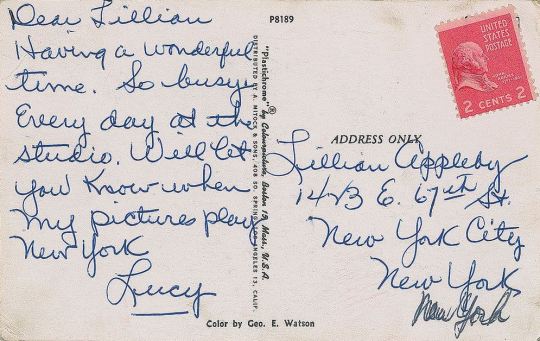 Dear Lillian
Having a wonderful
time. So busy.
Every day at the
studio. Will let
you know when
my pictures play
New York
Lucy
P8189
"Plastichrome" by Colourpicture, Boston 15, Mass., U.S.A.
DISTRIBUTED BY A. MITOCK & SONS, 408 SO. SPRING, LOS ANGELES 13, CALIF.
Color by Geo. E. Watson
UNITED
STATES
POSTAGE
2 CENTS 2
ADDRESS ONLY
Lillian Appleby
E. 67th St.
New York City
New York
New York